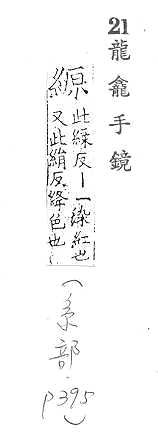 21 龍龕手鏡
縓
此緣反丨一染紅也
又此絹反絳色也
(糸部 p395)